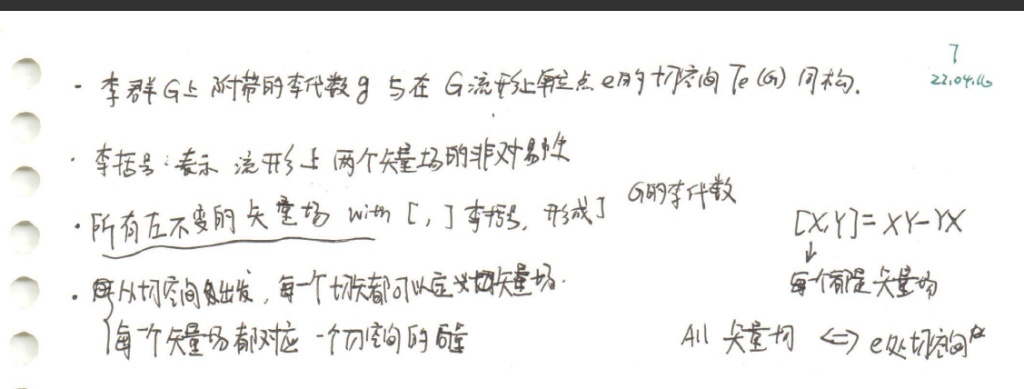 7
22.04.16
· 李群G上 附带的李代数g 与在 G流形上单位点 e的切空间 Te(G) 同构.
· 李括号:表示 流形上 两个矢量场的非对易性
· 所有左不变的矢量场 with [ , ] 李括号, 形成了 G的李代数
[X,Y]=XY-YX
↓
每个都是矢量场
· 从切空间出发, 每一个切矢都可以定义矢量场.
每一个矢量场都对应 一个切空间的
All 矢量场 <=> e处切空间